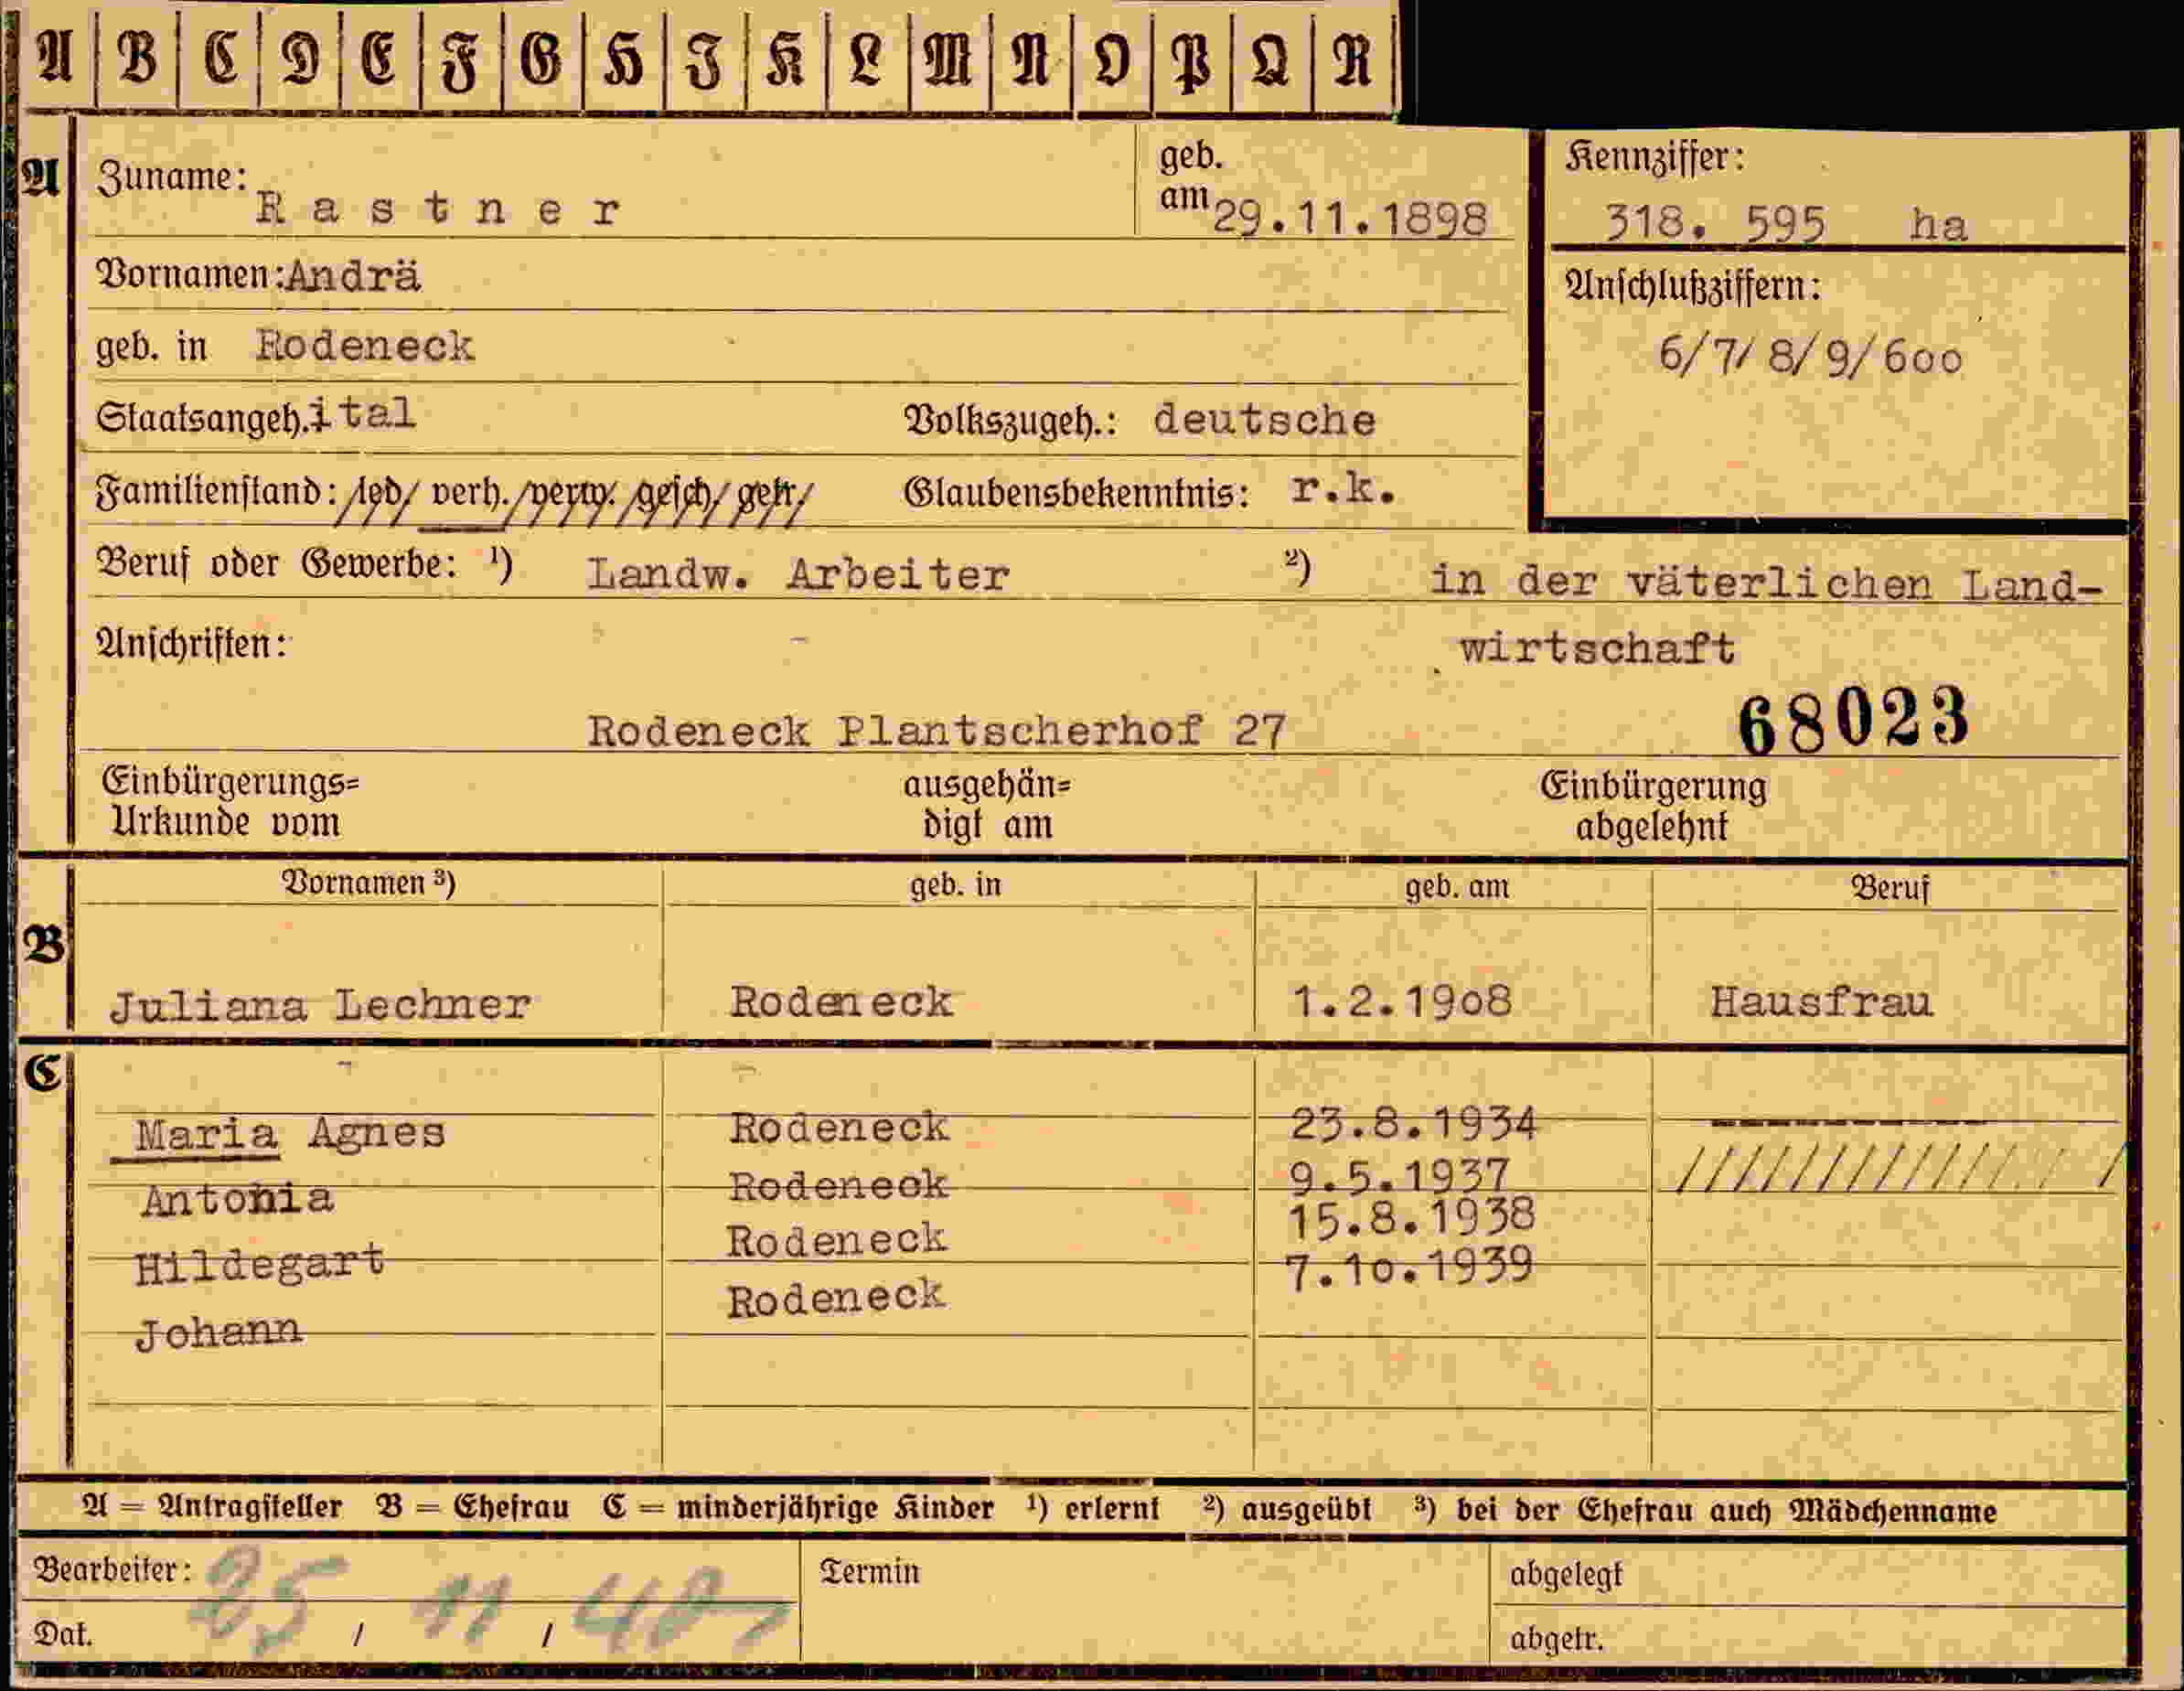 A B C D E F G H I K L M N O P Q R
A Zuname: Rastner geb. am 29.11.1898 Kennziffer: 318. 595 ha
Vornamen: Andrä Anschlußziffern:
geb. in Rodeneck 6/7/8/9/600
Staatsangeh. ital Volkszugeh.: deutsche
Familienstand: /led/ verh./verw./gesch/getr/ Glaubensbekenntnis: r.k.
Beruf oder Gewerbe: ¹) Landw. Arbeiter ²) in der väterlichen Land-
Anschriften: wirtschaft
Rodeneck Plantscherhof 27 68023
Einbürgerungs= ausgehän= Einbürgerung
Urkunde vom digt am abgelehnt
Vornamen ³) geb. in geb. am Beruf
B
Juliana Lechner Rodeneck 1.2.1908 Hausfrau
C
Maria Agnes Rodeneck 23.8.1934 ----------
Antonia Rodeneck 9.5.1937 ///////////////
Hildegart Rodeneck 15.8.1938
Johann Rodeneck 7.10.1939
A = Antragsteller B = Ehefrau C = minderjährige Kinder ¹) erlernt ²) ausgeübt ³) bei der Ehefrau auch Mädchenname
Bearbeiter: Termin abgelegt
Dat. 25 / 11 / 40 abgetr.